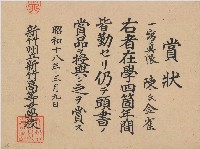 賞狀
一、寫真帳
陳氏金雀
右者在學四箇年間
皆勤セリ仍テ頭書ノ
賞品ヲ授與シ之ヲ賞ス
昭和十八年三月九日
新竹州立新竹高等女學校